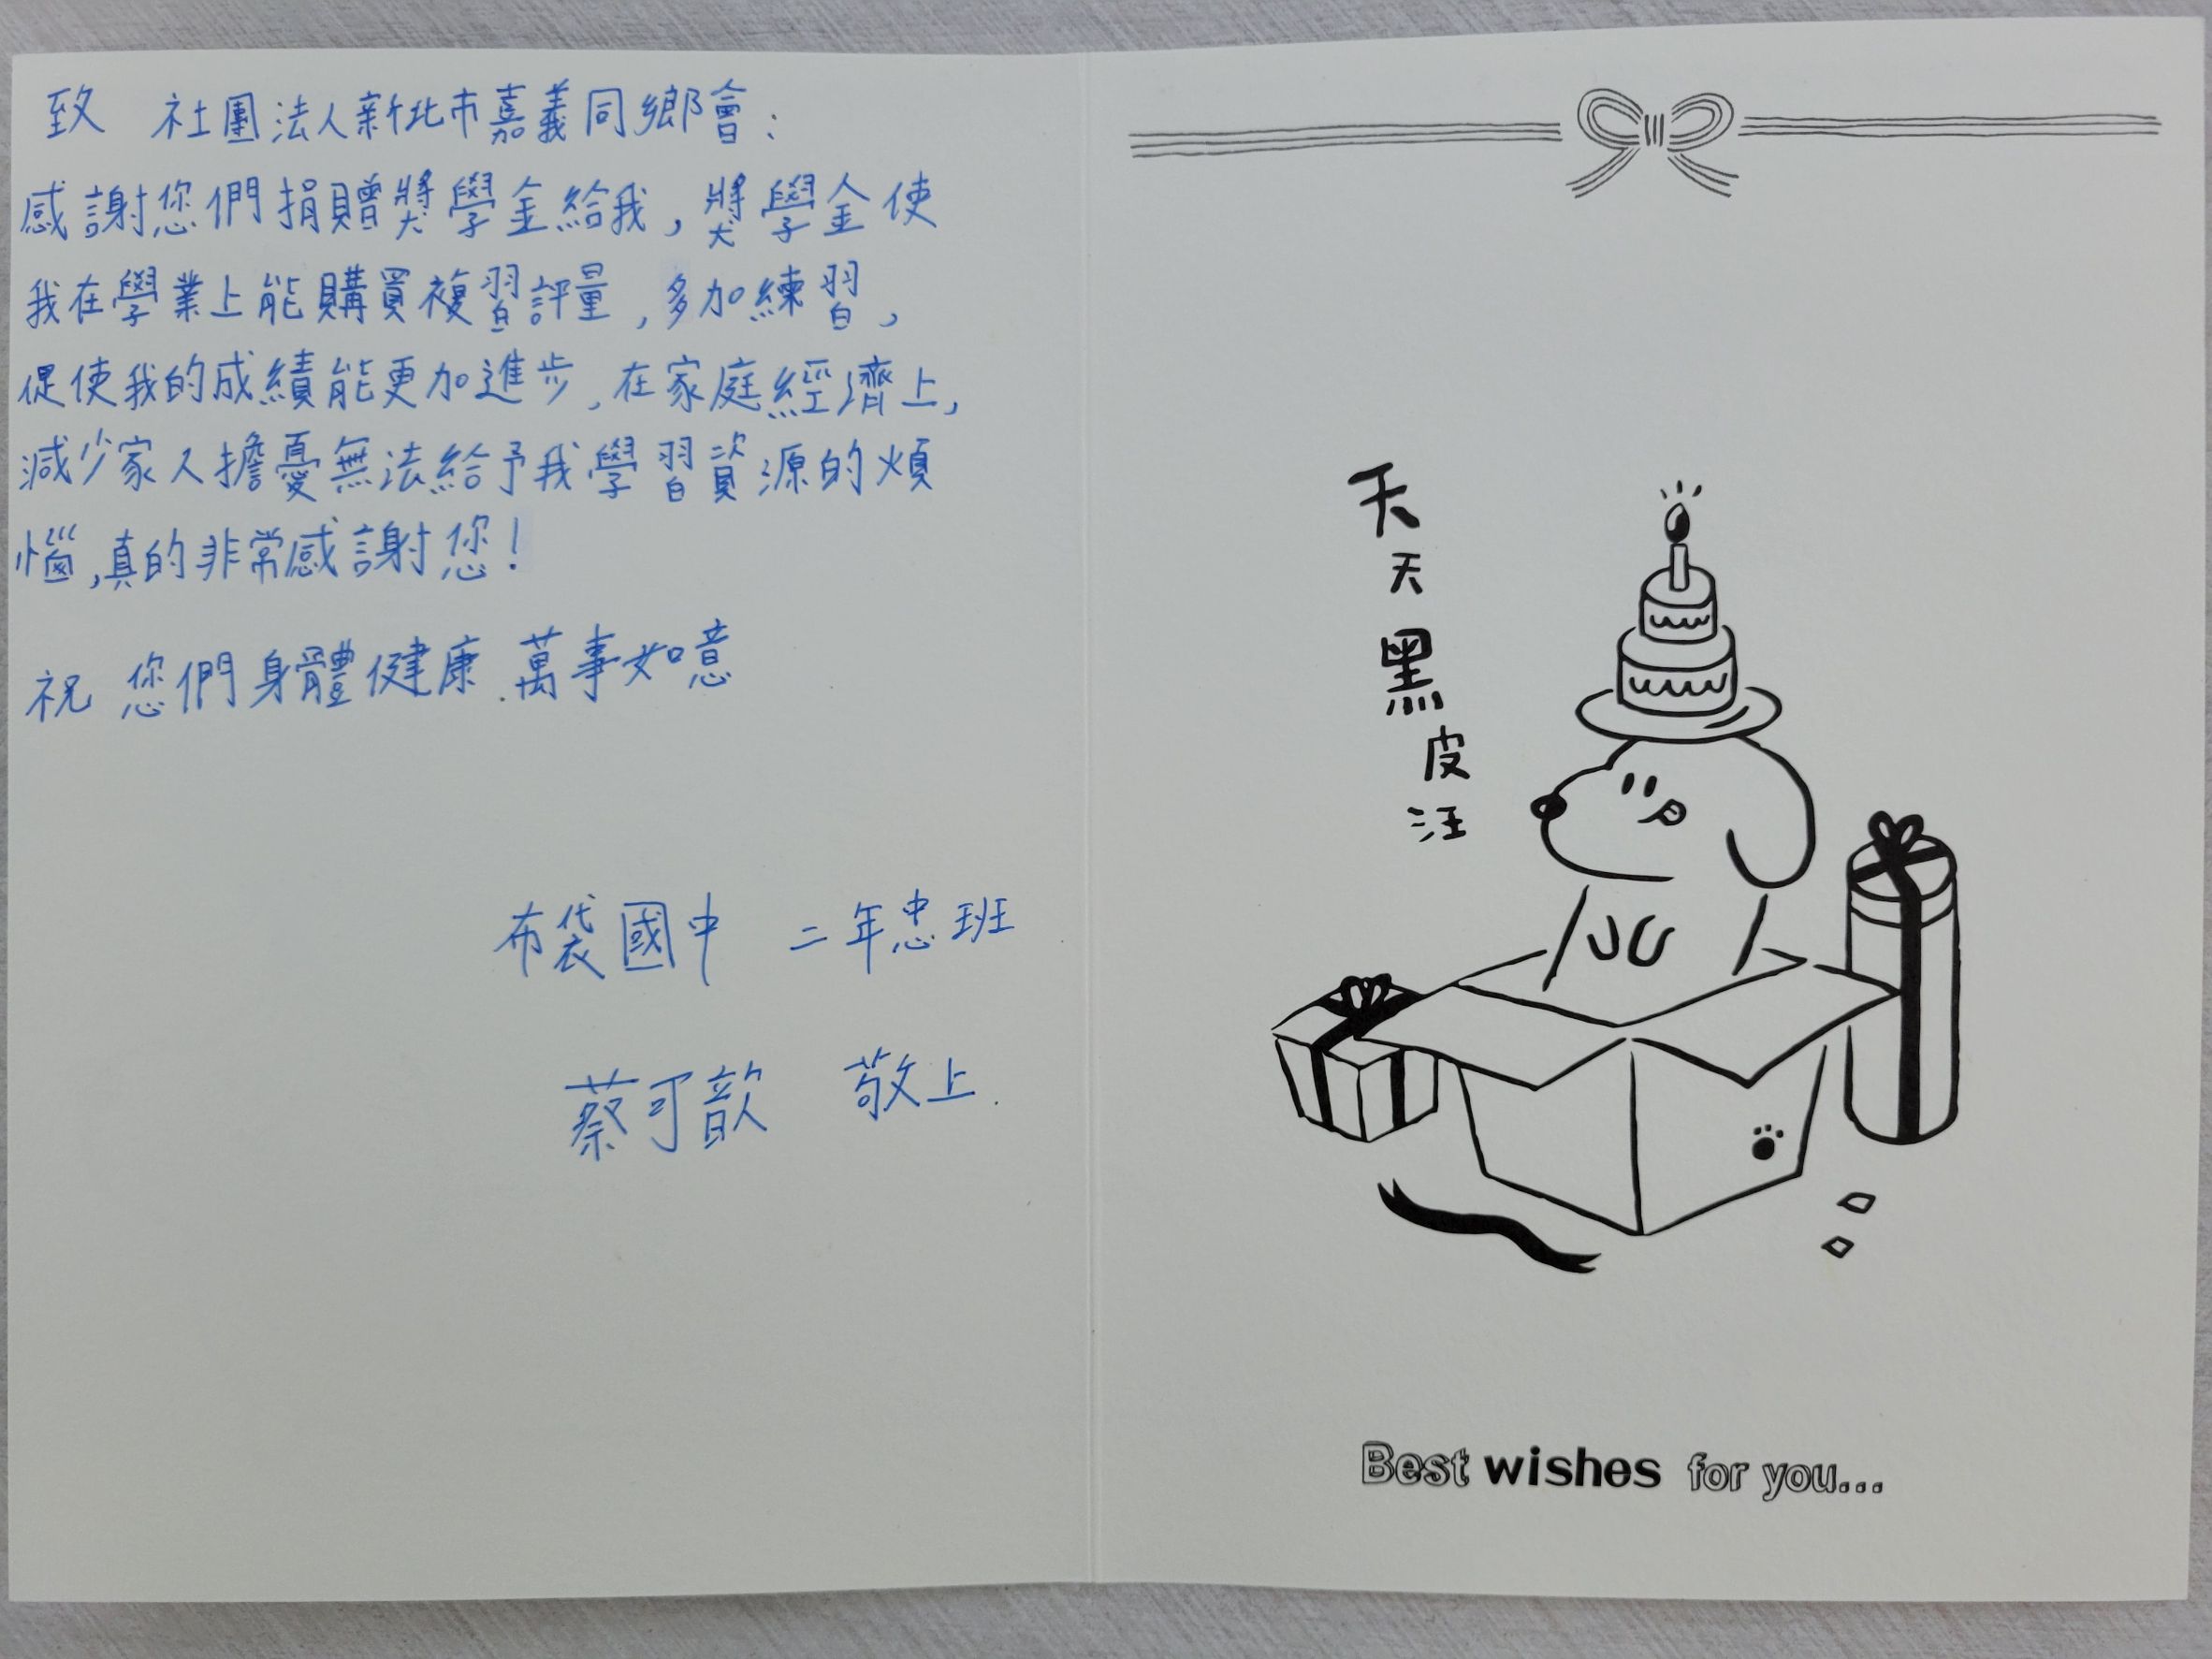 致 社團法人新北市嘉義同鄉會:
感謝您們捐贈獎學金給我,獎學金使
我在學業上能購買複習評量,多加練習,
促使我的成績能更加進步,在家庭經濟上,
減少家人擔憂無法給予我學習資源的煩
惱,真的非常感謝您!
祝 您們身體健康.萬事如意
布袋國中 二年忠班
蔡可歆 敬上.
天天黑皮汪
Best wishes for you...